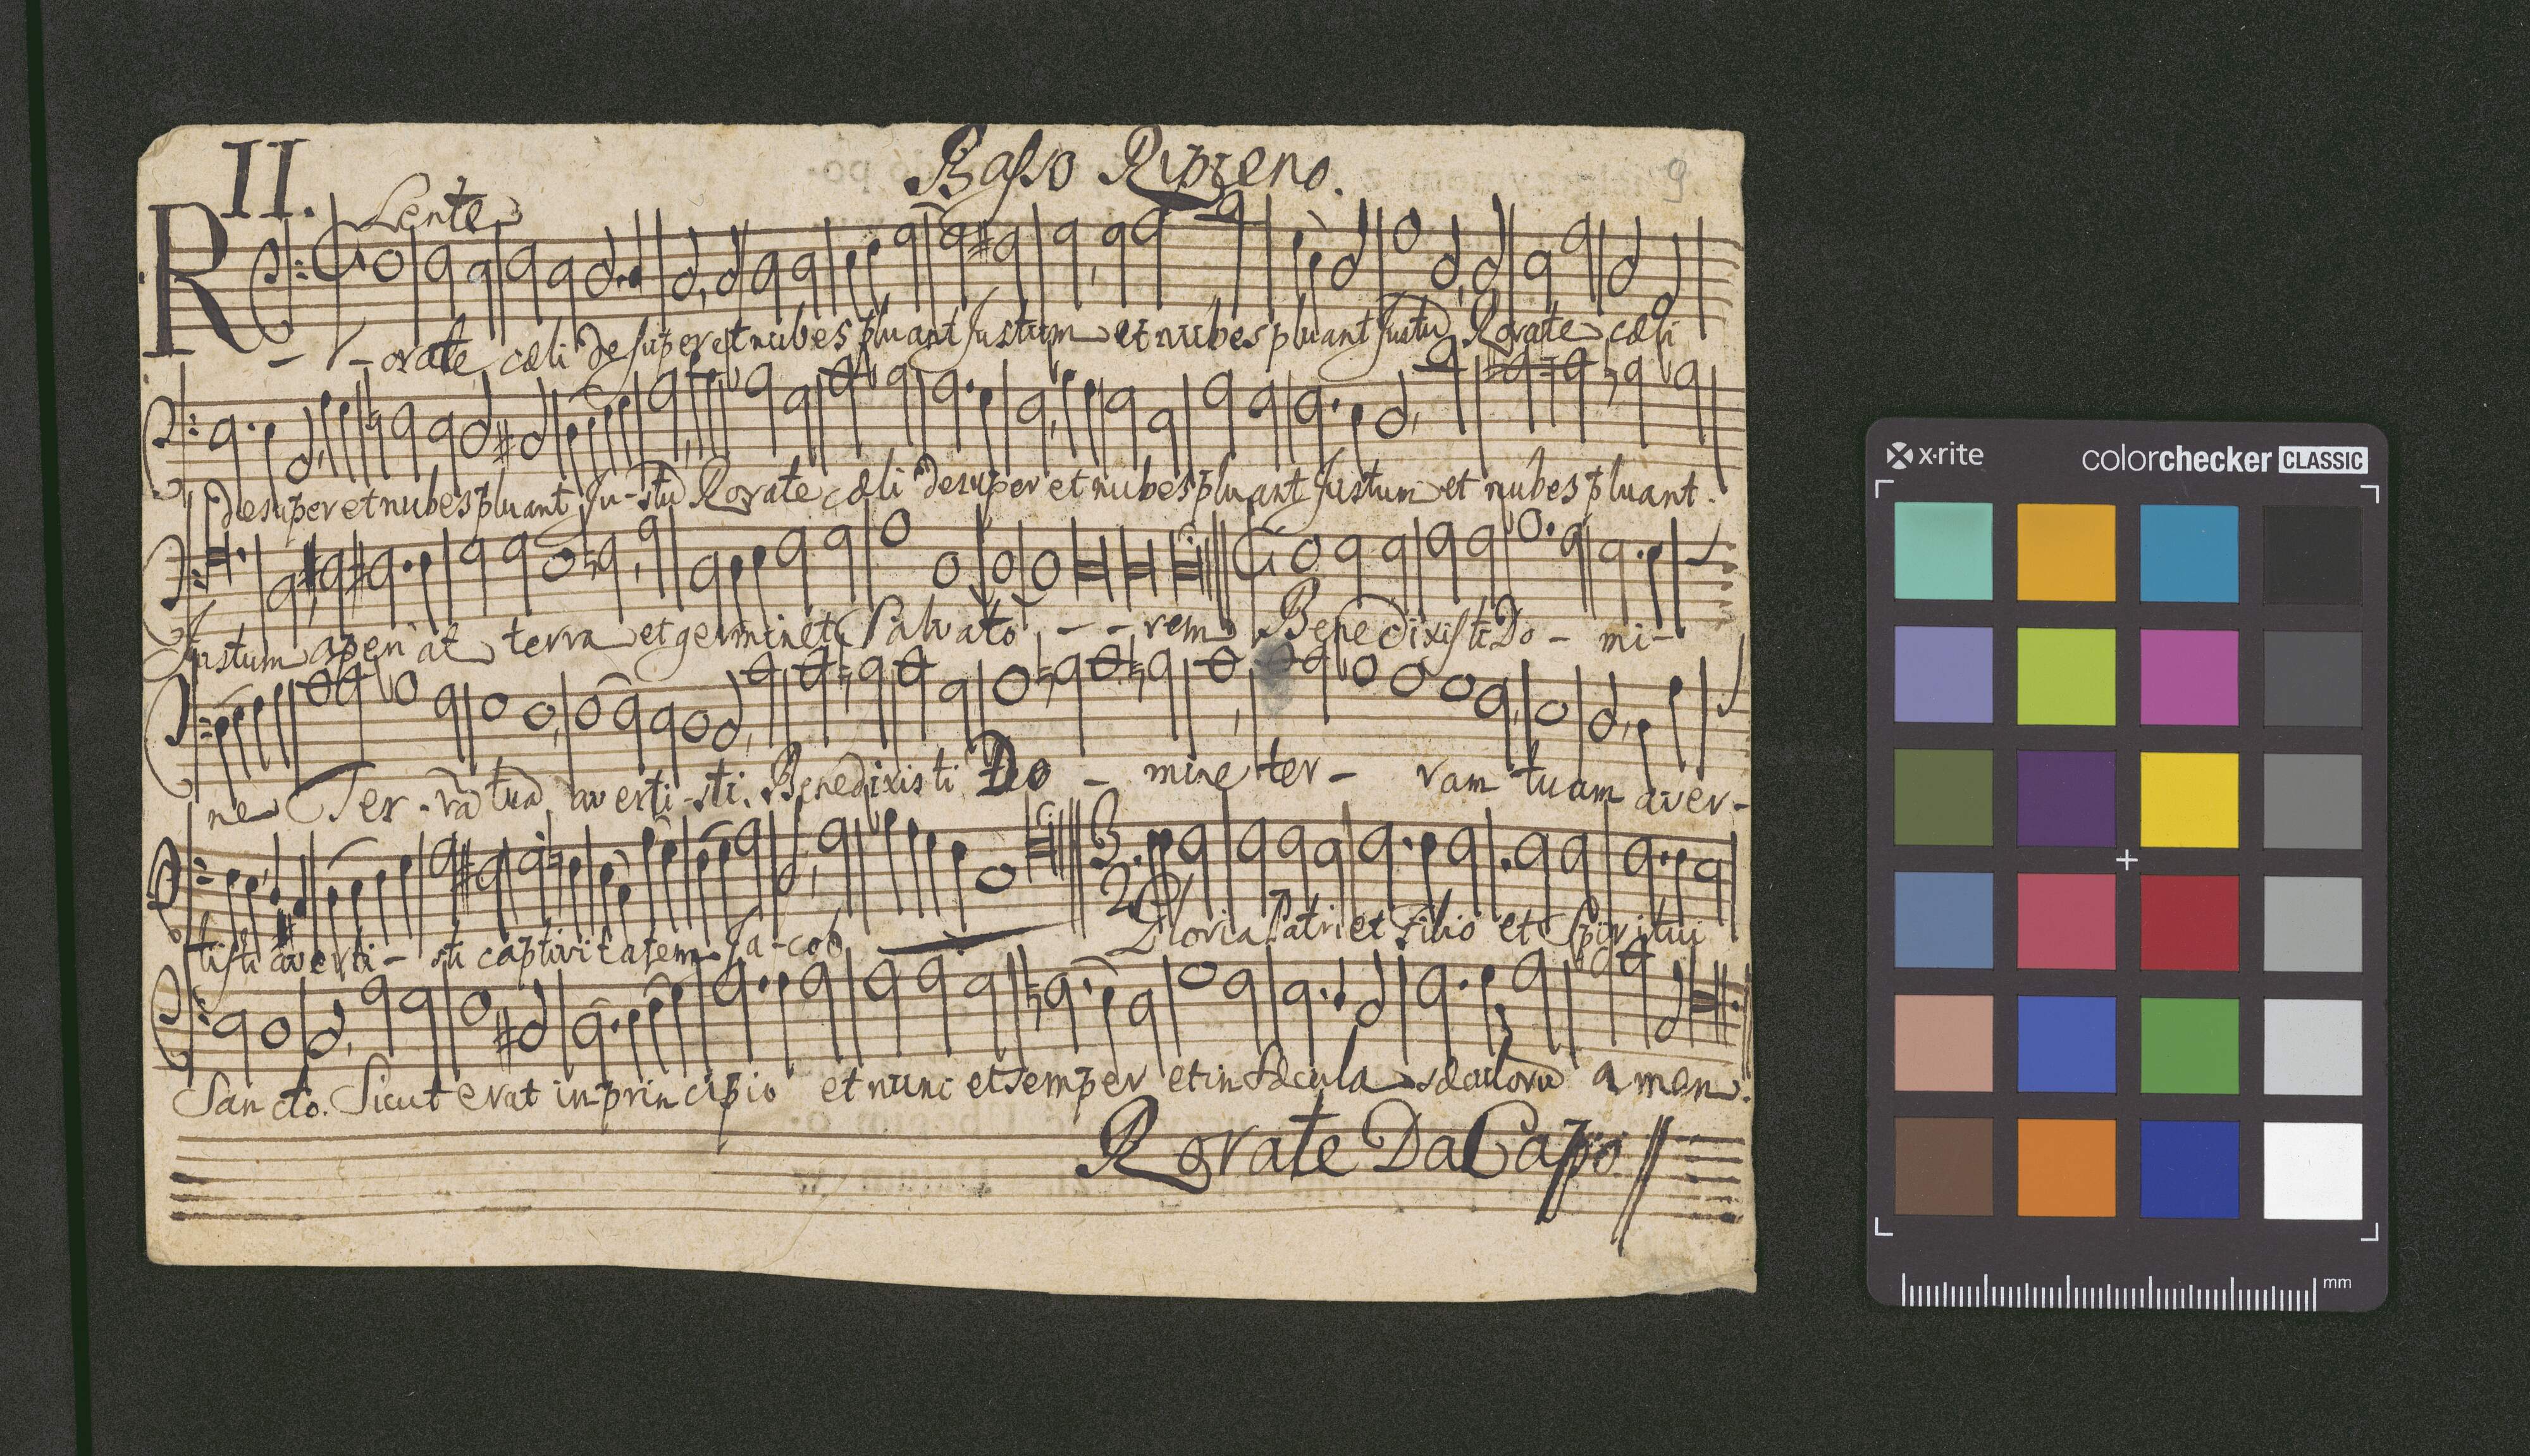 II. Basso Ripieno. 9
Lente
Rorate cæli desuper et nubes pluant Justum et nubes pluant Justū Rorate cæli
desuper et nubes pluant Ju-stū Rorate cæli desuper et nubes pluant Justum et nubes pluant.
Justum aperiat terra et germinet Salvato - - rem Benedixisti Do - mi-
ne Ter-rā tuā averti-sti. Benedixisti Do - mine ter - ram tuam aver-
tisti averti - sti captivitatem Ja-cob Gloria Patri et Filio et Spiritui
Sancto. Sicut erat in principio et nunc et semper et in sæcula sæculorū amen.
Rorate Da Capo
x-rite colorchecker CLASSIC
mm